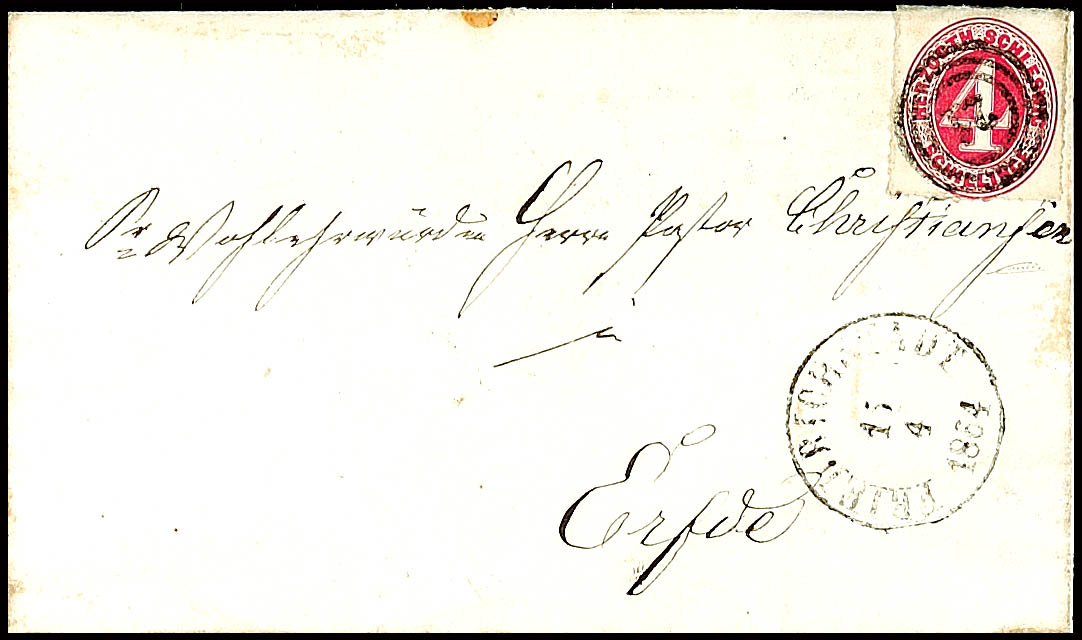 HERZOGTH. SCHLESWIG
4
SCHILLINGE
Sr Wohlehrwürden Herrn Pastor Christiansen
in
Erfde
FRIEDRICHSTADT
15
4
1864